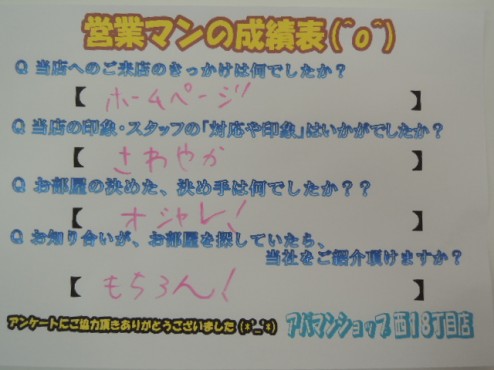 営業マンの成績表(^o^)
Q 当店へのご来店のきっかけは何でしたか？
【 ホームページ!! 】
Q 当店の印象・スタッフの「対応や印象」はいかがでしたか？
【 さわやか 】
Q お部屋の決めた、決め手は何でしたか？？
【 オシャレ! 】
Q お知り合いが、お部屋を探していたら、
当社をご紹介頂けますか？
【 もちろん! 】
アンケートにご協力頂きありがとうございました(*^_^*) アパマンショップ 西18丁目店